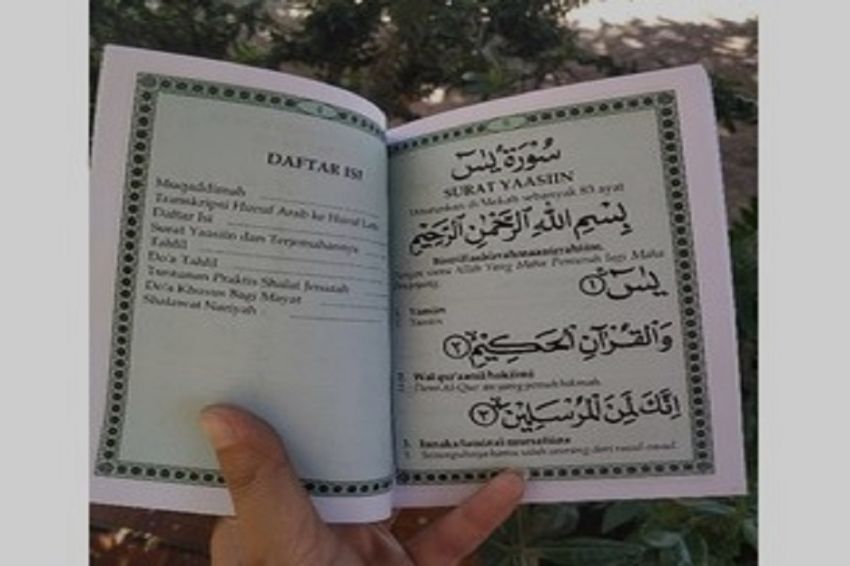 DAFTAR ISI
Muqaddimah
Transkripsi Huruf Arab ke Huruf Latin
Daftar Isi
Surat Yaasiin dan Terjemahannya
Tahlil
Do'a Tahlil
Tuntunan Praktis Shalat Jenazah
Do'a Khusus Bagi Mayat
Shalawat Nariyah
سُوْرَةُ يٰسٓ
SURAT YAASIIN
Diturunkan di Mekah sebanyak 83 ayat
بِسْمِ اللّٰهِ الرَّحْمٰنِ الرَّحِيْمِ
Bismillaahirrahmaanirrahiim.
Dengan nama Allah Yang Maha Pemurah lagi Maha
Penyayang.
يٰسٓ ١
1. Yaasiin
1. Yaasiin
وَالْقُرْاٰنِ الْحَكِيْمِ ٢
2. Wal qur'aanil hakiimi
2. Demi Al-Qur'an yang penuh hikmah.
اِنَّكَ لَمِنَ الْمُرْسَلِيْنَ ٣
3. Innaka laminal mursaliina
3. Sesungguhnya kamu salah seorang dari rasul-rasul.